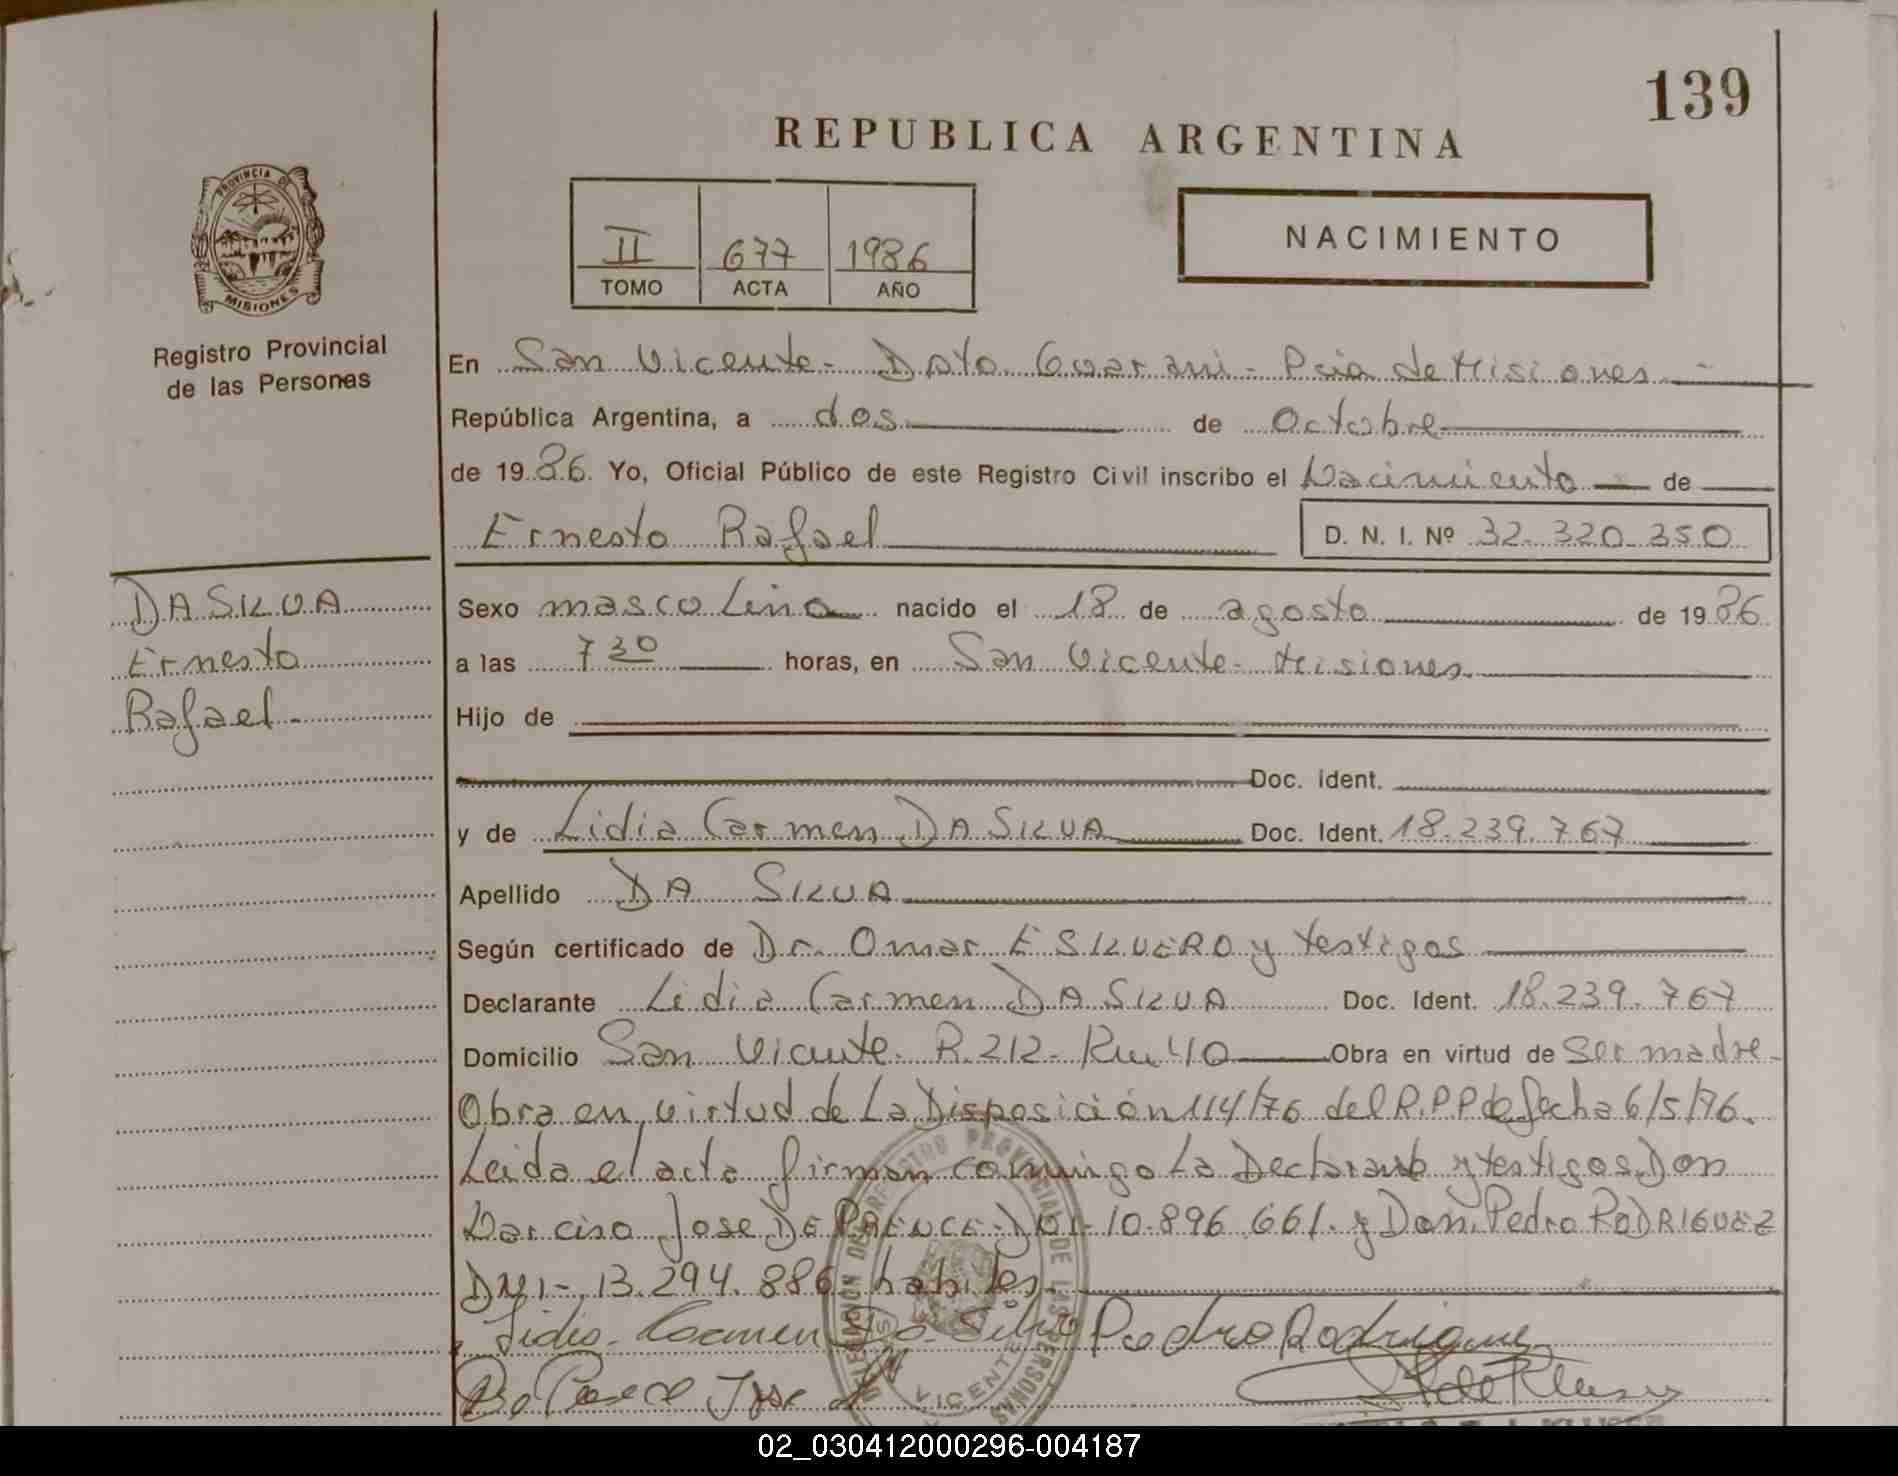 139
REPUBLICA ARGENTINA
PROVINCIA DE
MISIONES
Registro Provincial
de las Personas
II 677 1986
TOMO ACTA AÑO
NACIMIENTO
En San Vicente - Dpto Guarani - Pcia de Misiones
República Argentina, a dos de Octubre
de 1986. Yo, Oficial Público de este Registro Civil inscribo el Nacimiento de
Ernesto Rafael D. N. I. Nº 32.320.350
DA SILVA
Ernesto
Rafael
Sexo masculino nacido el 18 de agosto de 1986
a las 7 30 horas, en San Vicente - Misiones
Hijo de
Doc. ident.
y de Lidia Carmen DA SILVA Doc. Ident. 18.239.767
Apellido DA SILVA
Según certificado de Dr. Omar E SILVERO y testigos
Declarante Lidia Carmen DA SILVA Doc. Ident. 18.239.767
Domicilio San Vicente R.212 - Km 40 Obra en virtud de Ser madre -
Obra en virtud de La Disposición 114/76 del R.P.P de fecha 6/5/76.
Leida el acta firman conmigo La Declarante y testigos Don
Narciso Jose DE PAENCE - DNI - 10.896.661. y Don Pedro RODRIGUEZ
DNI - 13.294.886 habiles
Lidia Carmen Da Silva Pedro Rodriguez
Jose
DELEGACION DEL REGISTRO PROVINCIAL DE LAS PERSONAS
VICENTE
02_030412000296-004187